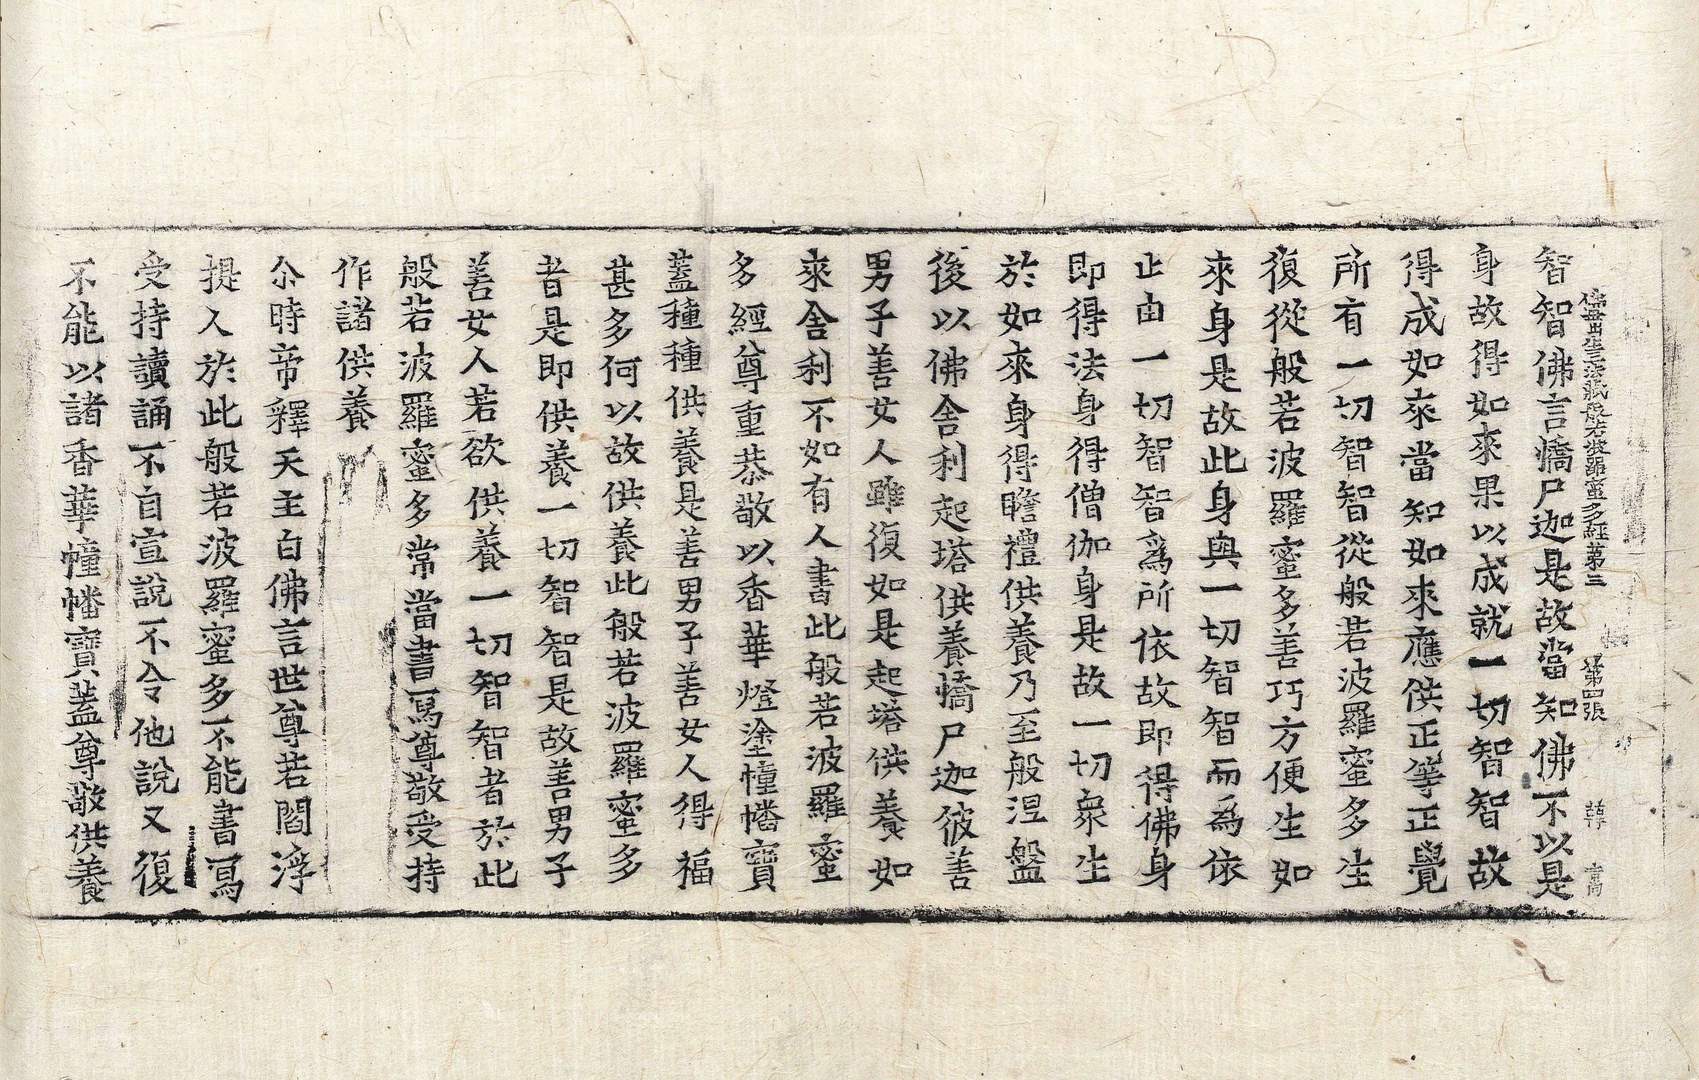 佛母出生三法藏般若波羅蜜多經第三 第四張
智智佛言憍尸迦是故當知佛不以是
身故得如來果以成就一切智智故
得成如來當知如來應供正等正覺
所有一切智智從般若波羅蜜多生
復從般若波羅蜜多善巧方便生如
來身是故此身與一切智智而爲依
止由一切智智爲所依故即得佛身
即得法身得僧伽身是故一切衆生
於如來身得瞻禮供養乃至般涅盤
後以佛舍利起塔供養憍尸迦彼善
男子善女人雖復如是起塔供養如
來舍利不如有人書此般若波羅蜜
多經尊重恭敬以香華燈塗幢幡寶
蓋種種供養是善男子善女人得福
甚多何以故供養此般若波羅蜜多
者是即供養一切智智是故善男子
善女人若欲供養一切智智者於此
般若波羅蜜多常當書寫尊敬受持
作諸供養
尒時帝釋天主白佛言世尊若閻浮
提人於此般若波羅蜜多不能書寫
受持讀誦不自宣說不令他說又復
不能以諸香華幢幡寶蓋尊敬供養